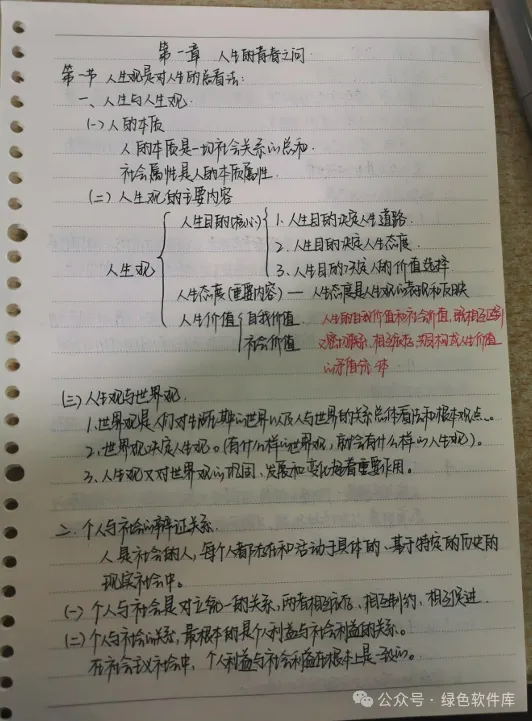 第一章 人生的青春之问
第一节 人生观是对人生的总看法:
一、人生与人生观.
(一)人的本质
人的本质是一切社会关系的总和.
社会属性是人的本质属性.
(二)人生观的主要内容
人生观
人生目的(核心)
1.人生目的决定人生道路.
2.人生目的决定人生态度.
3.人生目的决定人的价值选择
人生态度(重要内容)— 人生态度是人生观的表现和反映
人生价值
自我价值
社会价值
人生的自我价值和社会价值,既相互区别
又密切联系、相互依存,共同构成人生价值
的矛盾统一体
(三)人生观与世界观.
1.世界观是人们对生活其中的世界以及人与世界的关系总体看法和根本观点。
2.世界观决定人生观。(有什么样的世界观,就会有什么样的人生观)。
3.人生观又对世界观的巩固、发展和变化起着重要作用。
二.个人与社会的辩证关系.
人是社会的人,每个人都存在和活动于具体的、基于特定的历史的
现实社会中。
(一)个人与社会是对立统一的关系,两者相互依存、相互制约、相互促进.
(二)个人与社会的关系,最根本的是个人利益与社会利益的关系。
在社会主义社会中,个人利益与社会利益在根本上是一致的。
公众号·绿色软件库